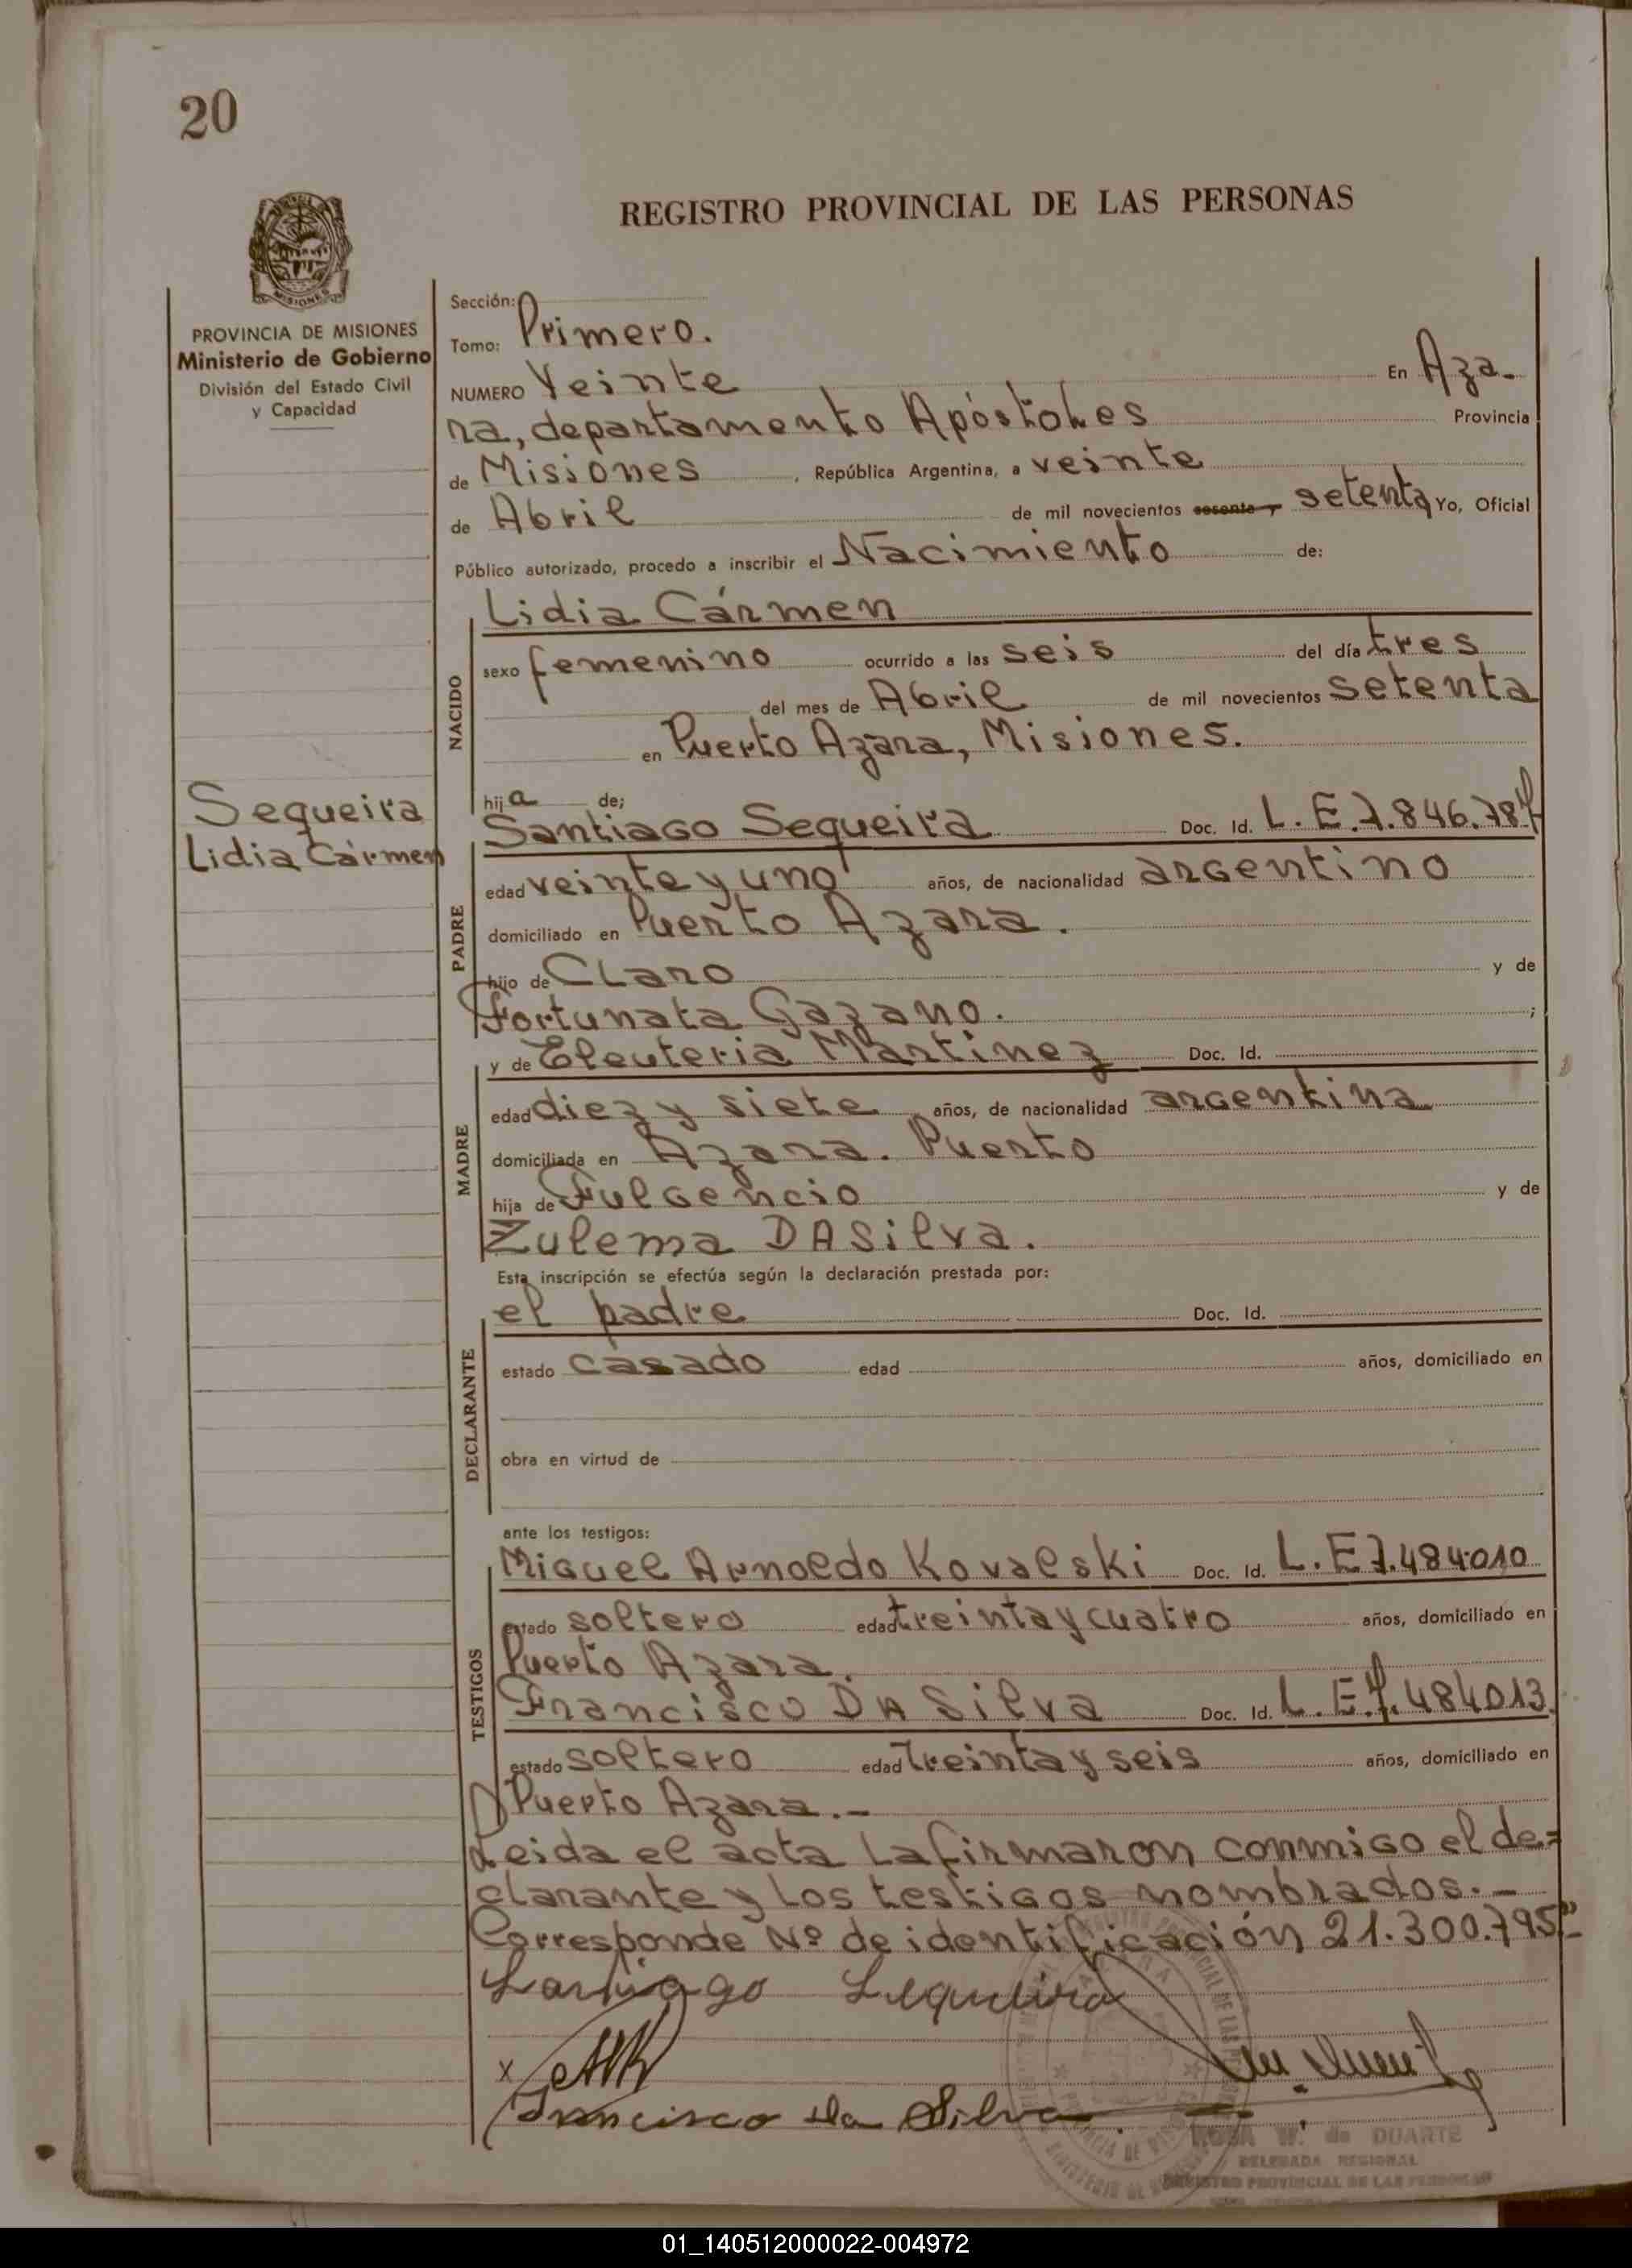 20
REGISTRO PROVINCIAL DE LAS PERSONAS
MISIONES
PROVINCIA DE MISIONES
Ministerio de Gobierno
División del Estado Civil
y Capacidad
Sequeira
Lidia Cármen
Sección:
Tomo: Primero.
NUMERO Veinte En Aza-
ra, departamento Apóstoles Provincia
de Misiones, República Argentina, a veinte
de Abril de mil novecientos sesenta y setenta Yo, Oficial
Público autorizado, procedo a inscribir el Nacimiento de:
NACIDO
Lidia Cármen
sexo femenino ocurrido a las seis del día tres
del mes de Abril de mil novecientos setenta
en Puerto Azara, Misiones.
hija de;
PADRE
Santiago Sequeira Doc. Id. L.E.7.846.784
edad veinte y uno años, de nacionalidad argentino
domiciliado en Puerto Azara.
hijo de Claro y de
Fortunata Gazano. ;
MADRE
y de Eleuteria Martinez Doc. Id.
edad diez y siete años, de nacionalidad argentina
domiciliada en Azara. Puerto
hija de Fulgencio y de
Zulema DASilva.
Esta inscripción se efectúa según la declaración prestada por:
DECLARANTE
el padre Doc. Id.
estado casado edad años, domiciliado en
obra en virtud de
ante los testigos:
TESTIGOS
Miguel Arnoldo Kovalski Doc. Id. L.E 7.484.010
estado soltero edad treinta y cuatro años, domiciliado en
Puerto Azara.
Francisco DA Silva Doc. Id. L.E. 484013
estado soltero edad treinta y seis años, domiciliado en
Puerto Azara.-
Leida el acta la firmaron conmigo el de=
clarante y los testigos nombrados.-
Corresponde Nº de identificación 21.300.795"-
Santiago Sequeira
x
Francisco da Silva
ROSA W. de DUARTE
DELEGADA REGIONAL
REGISTRO PROVINCIAL DE LAS PERSONAS
01_140512000022-004972